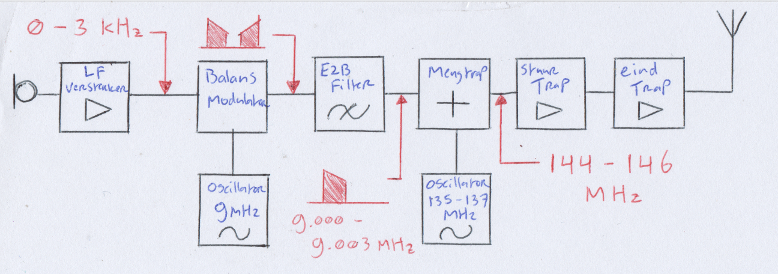 0 - 3 kHz
LF
Versterker
Balans
Modulator
EZB
Filter
Mengtrap
stuur
Trap
eind
Trap
Oscillator
9 MHz
9.000 -
9.003 MHz
Oscillator
135-137
MHz
144 - 146
MHz